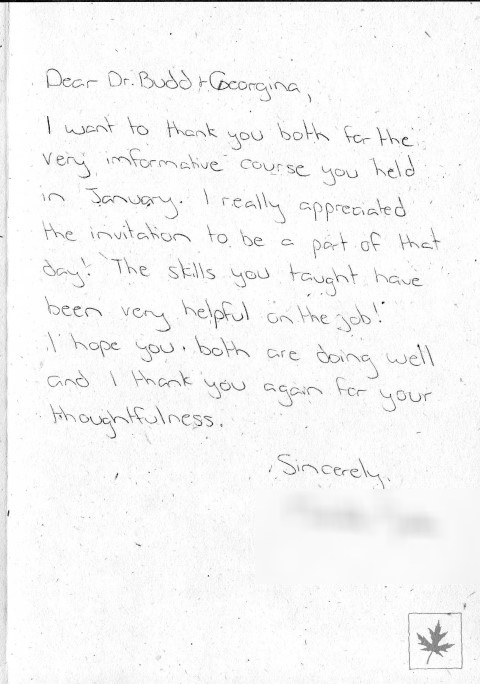 Dear Dr. Budd + Georgina,
I want to thank you both for the
very imformative course you held
in January. I really appreciated
the invitation to be a part of that
day! The skills you taught have
been very helpful on the job!
I hope you both are doing well
and I thank you again for your
thoughtfulness.
Sincerely,